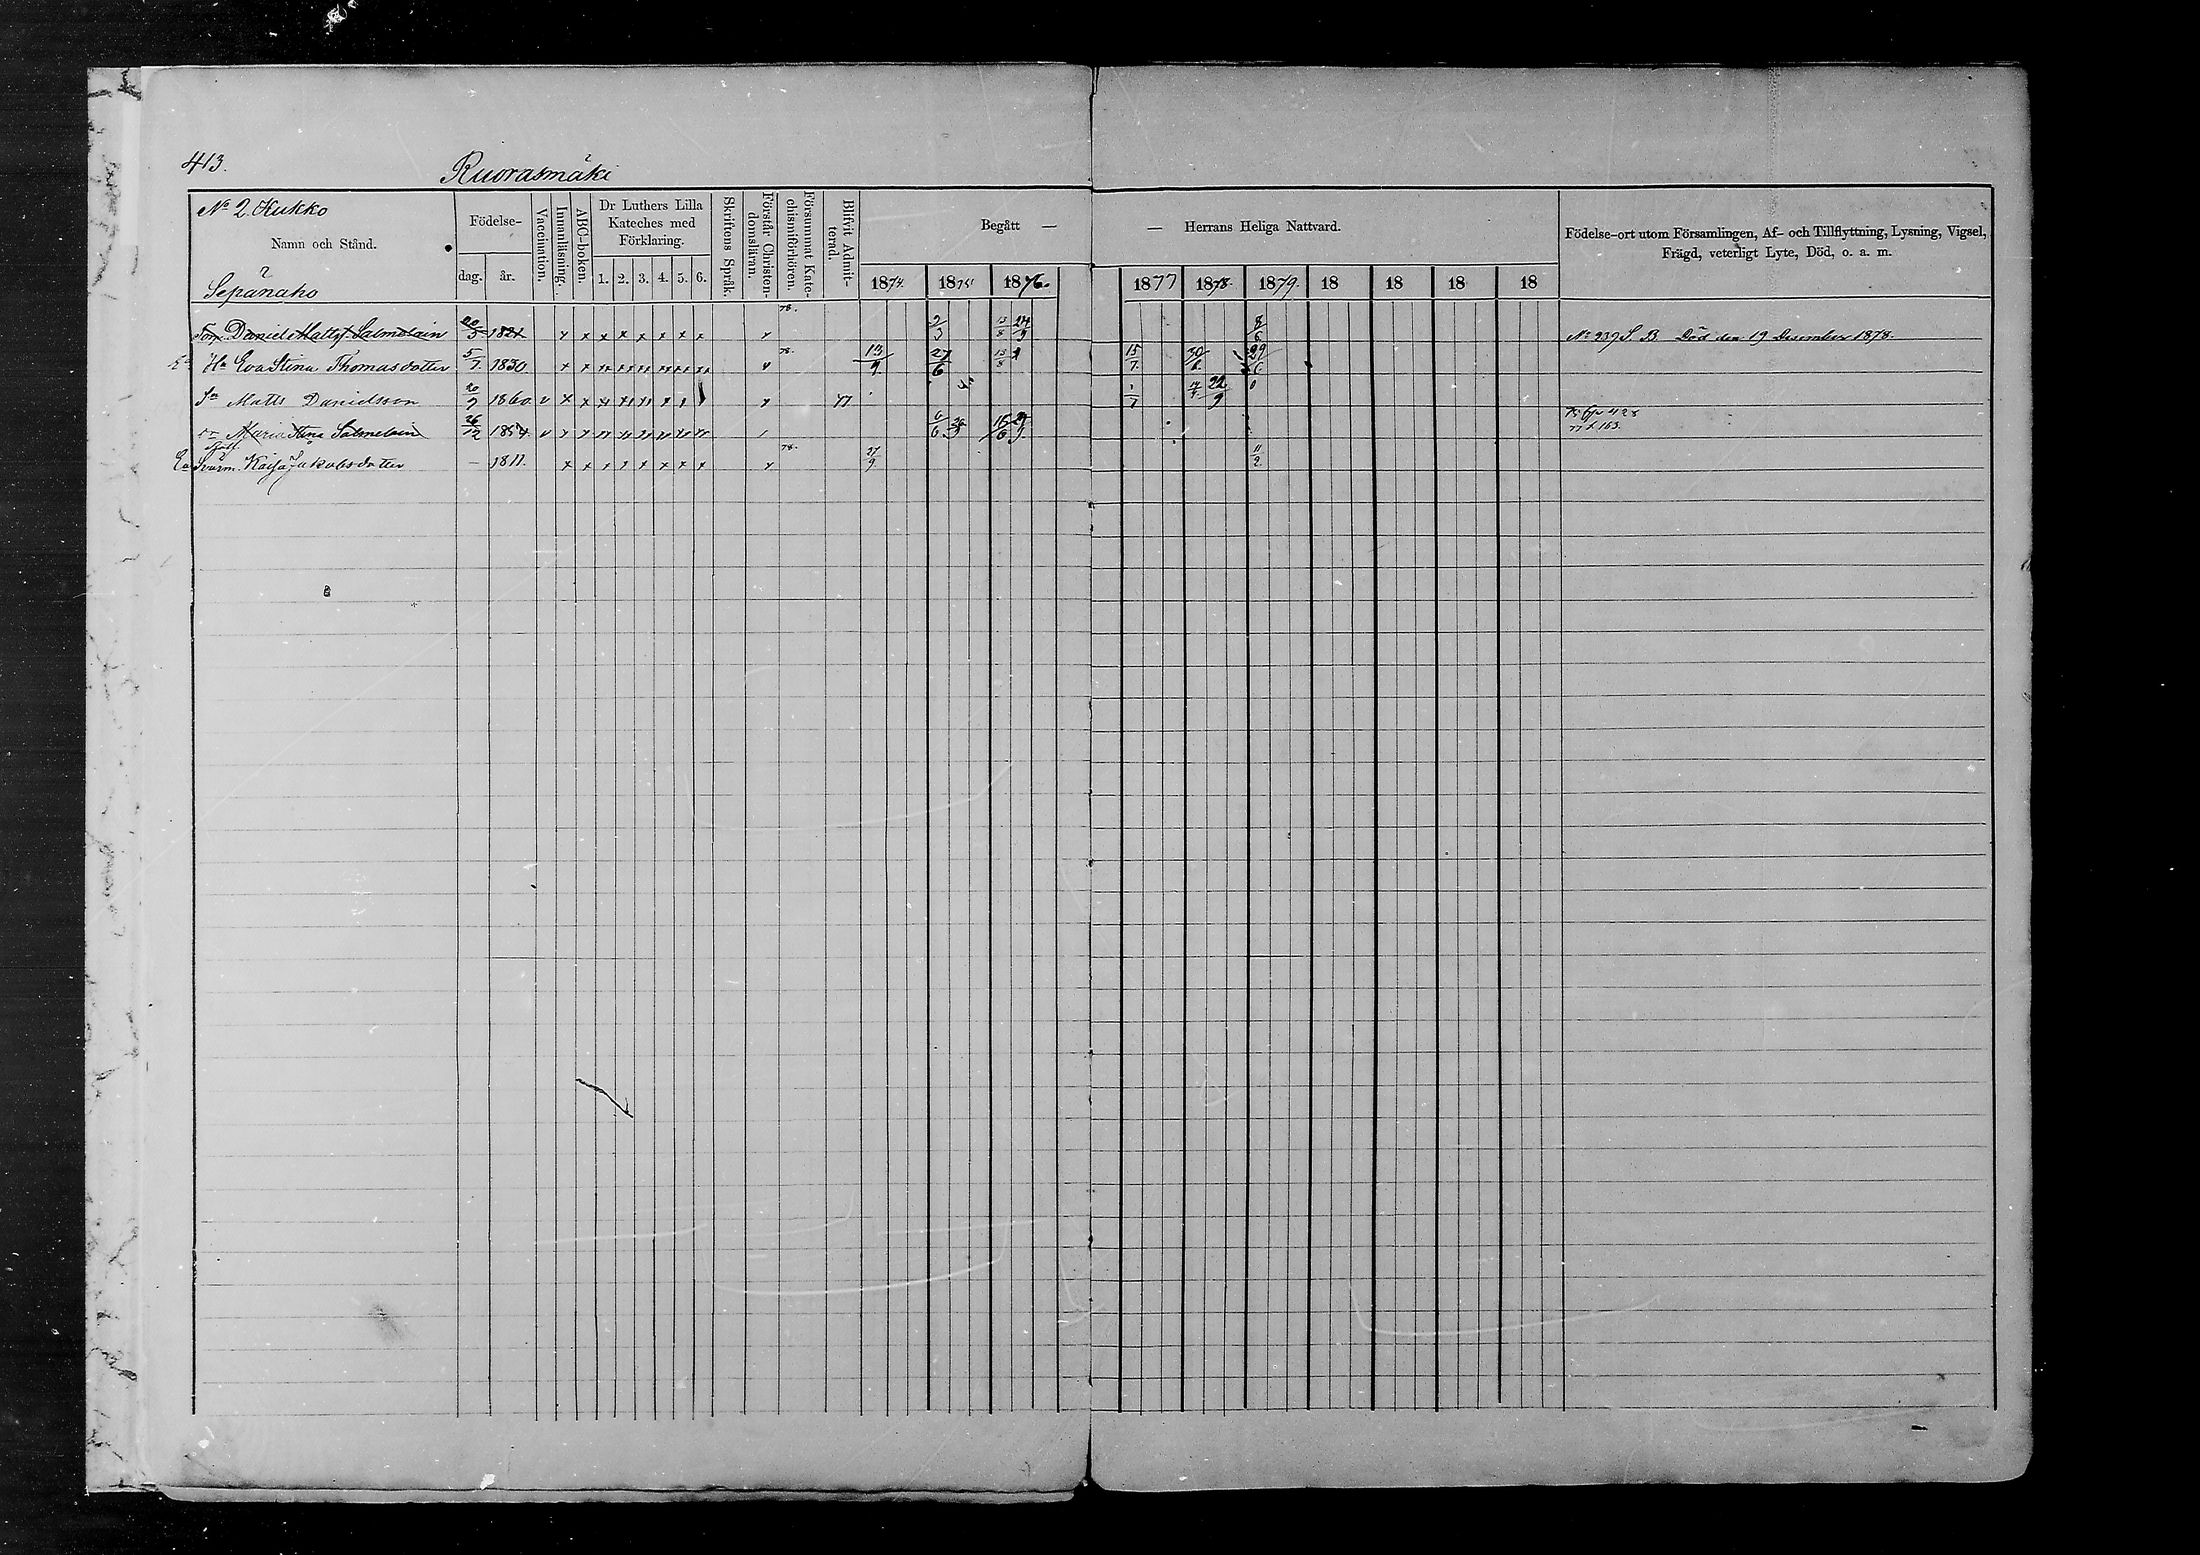 413. Ruorasmäki
No 2. Kukko
Namn och Stånd.
Sepänaho
Födelse-
dag. år.
Vaccination.
Innanläsning.
ABC-boken.
Dr Luthers Lilla
Kateches med
Förklaring.
1. 2. 3. 4. 5. 6.
Skriftens Språk.
Förstår Christen-
domsläran.
Försummat Kate-
chismiförhören.
Blifvit Admit-
terad.
Begått — — Herrans Heliga Nattvard.
1874. 1875 1876. 1877 1878. 1879. 18 18 18 18
Födelse-ort utom Församlingen, Af- och Tillflyttning, Lysning, Vigsel,
Frägd, veterligt Lyte, Död, o. a. m.
Torp. Daniel Mattsf. Salmelain 20/5 1821 x x x x x x x x x 78. 2/3 13/8 24/9 8/6 No 239 S. B. Död den 19 December 1878.
Ea Hu Eva Stina Thomasdotter 5/7. 1830 78. 13/9. 27/6 13/8 15/7. 30/6. 29/6
Sn Matts Danielsson 20/9 1860 v 77 14/7 22/9
Maria Stina Salmelain 26/12 1854 v 6/6 16/6
Ea Svärm. Kaisa Jakobsdotter — 1811. x x x x x x x x x 78. 27/9 11/2.